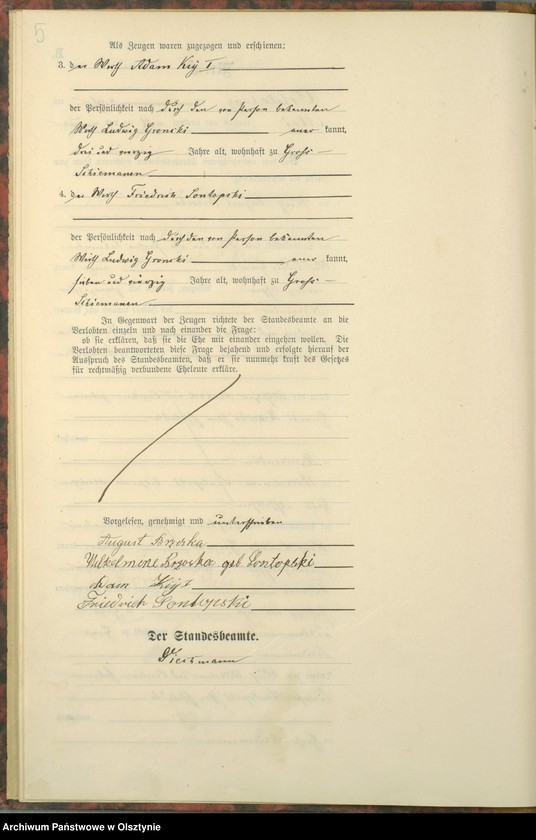 5
Als Zeugen waren zugezogen und erschienen:
3. der Wirth Adam Kiy I
der Persönlichkeit nach durch den von Person bekannten
Wirth Ludwig Gronski aner kannt,
drei und vierzig Jahre alt, wohnhaft zu Groß-
Schiemanen
4. der Wirth Friedrich Sontopski
der Persönlichkeit nach durch den von Person bekannten
Wirth Ludwig Gronski aner kannt,
sieben und vierzig Jahre alt, wohnhaft zu Groß-
Schiemanen
In Gegenwart der Zeugen richtete der Standesbeamte an die
Verlobten einzeln und nach einander die Frage:
ob sie erklären, daß sie die Ehe mit einander eingehen wollen. Die
Verlobten beantworteten diese Frage bejahend und erfolgte hierauf der
Ausspruch des Standesbeamten, daß er sie nunmehr kraft des Gesetzes
für rechtmäßig verbundene Eheleute erkläre.
Vorgelesen, genehmigt und unterschrieben
August Brzoska
Wilhelmine Brzoska geb Sontopski
Adam Kiy I
Friedrich Sontopski
Der Standesbeamte.
Archiwum Państwowe w Olsztynie